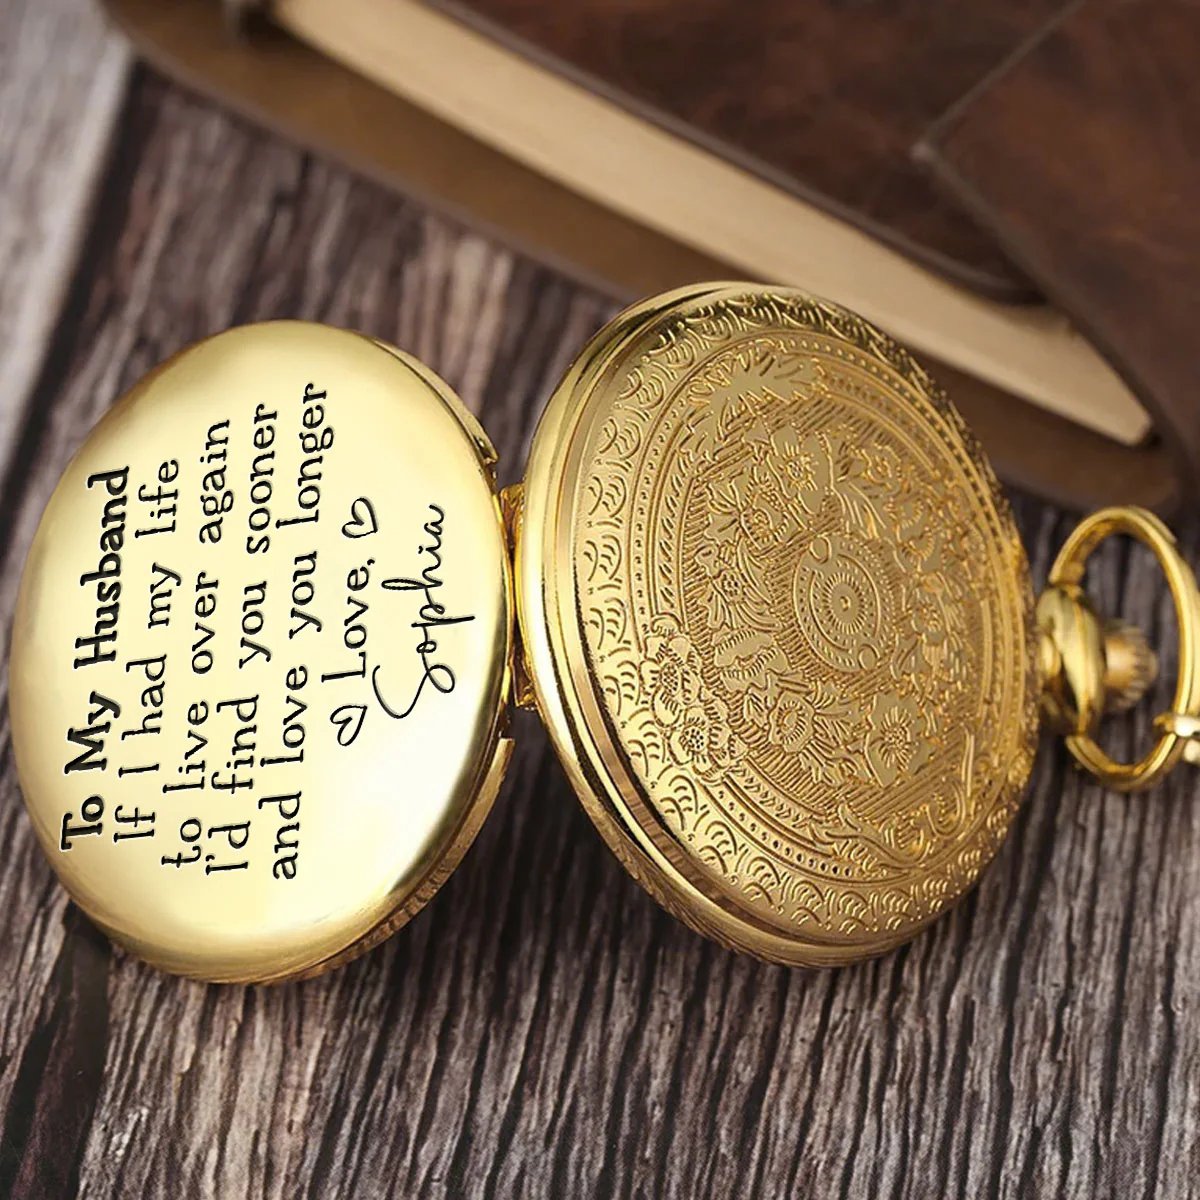 To My Husband
If I had my life
to live over again
I'd find you sooner
and love you longer
Love,
Sophia